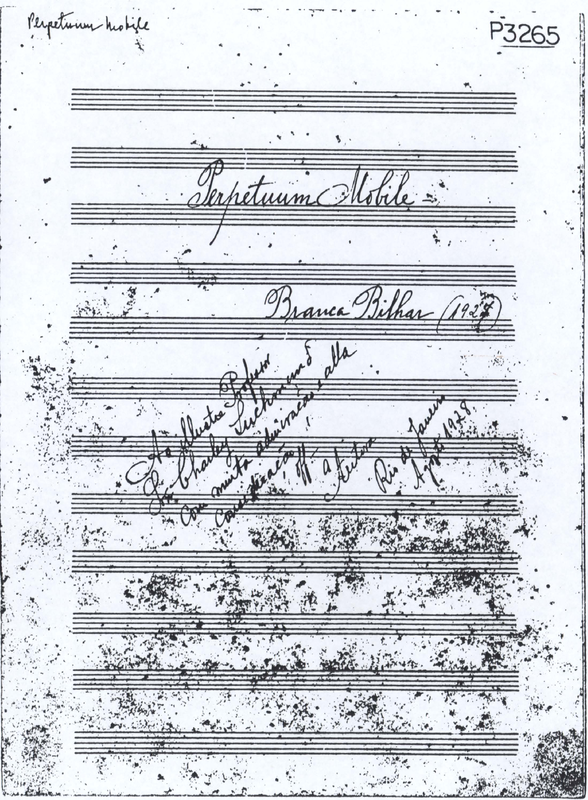 Perpetuum Mobile
P3265
Perpetuum Mobile
Branca Bilhar (1927)
Ao Illustre Professor
Snr. Charley Lachmund
com muita admiração e alta
consideração!
off. a
Autora
Rio de Janeiro
Agosto 1928